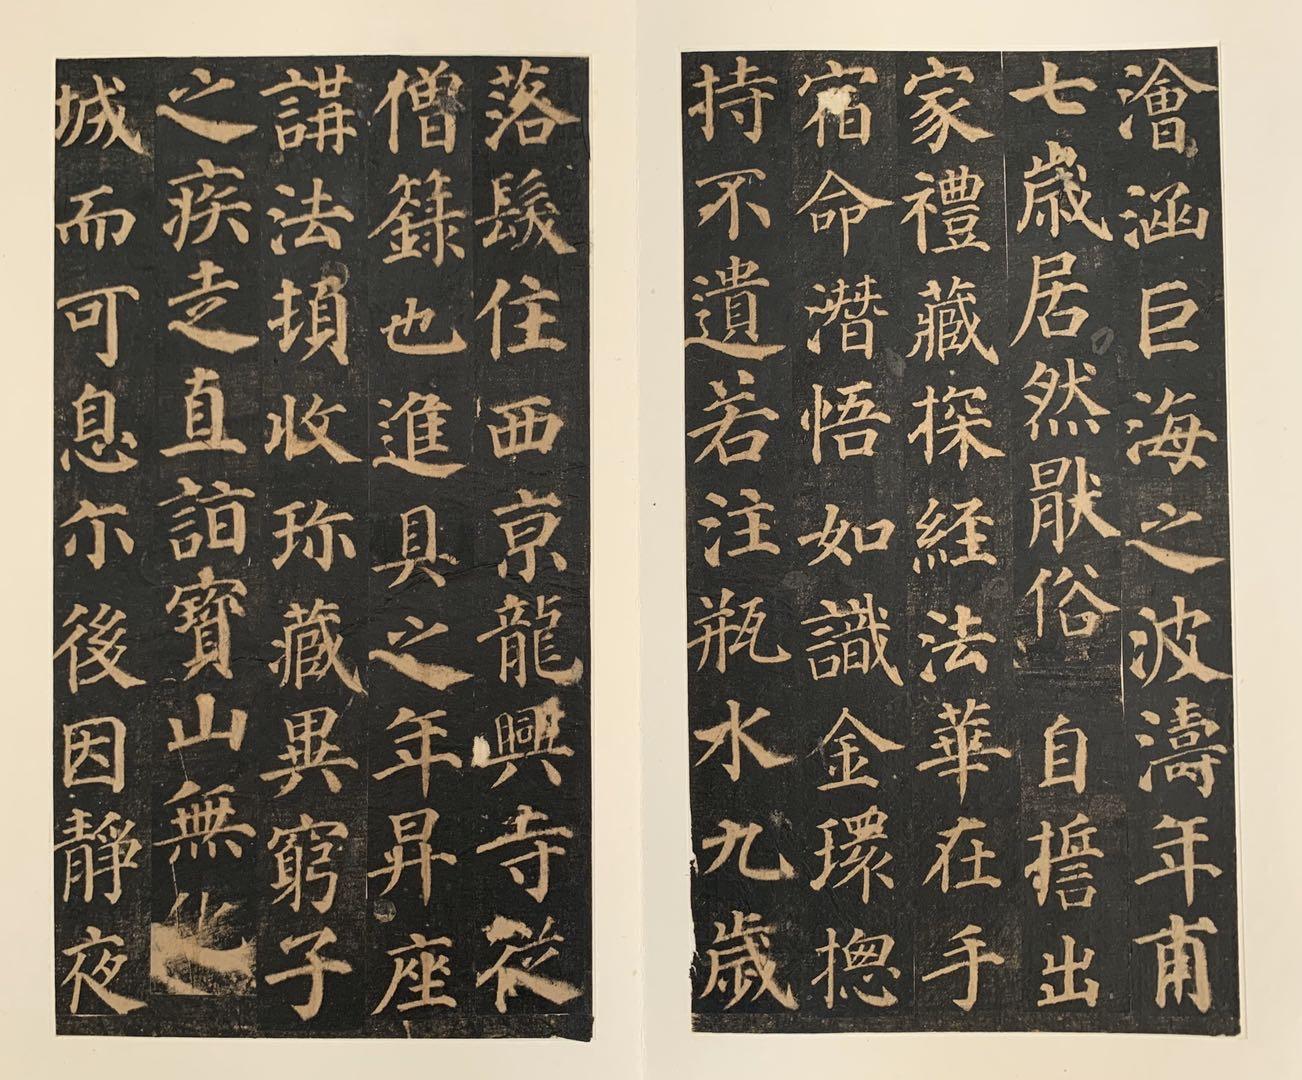 澮涵巨海之波濤年甫
七歲居然猒俗自誓出
家禮藏探經法華在手
宿命潛悟如識金環揔
持不遺若注瓶水九歲
落髮住西京龍興寺從
僧籙也進具之年昇座
講法頓收珎藏異窮子
之疾走直詣寶山無化
城而可息尒後因靜夜